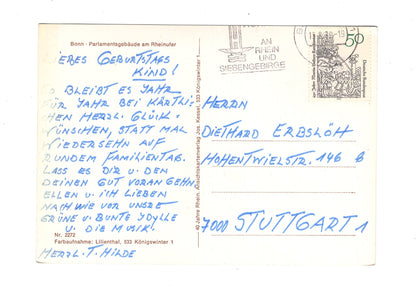 Bonn · Parlamentsgebäude am Rheinufer
LIEBES GEBURTSTAGS
KIND!
SO BLEIBT ES JAHR
FÜR JAHR BEI KÄRTLI-
CHEN HERZL. GLÜCK-
WÜNSCHEN, STATT MAL
WIEDERSEHN AUF
RUNDEM FAMILIENTAG.
LASS ES DIR U. DEN
DEINEN GUT VORANGEHN,
ELLEN U. ICH LIEBEN
NACH WIE VOR UNSRE
GRÜNE U. BUNTE IDYLLE
U. DIE MUSIK.
Nr. 2272
Farbaufnahme: Lilienthal, 533 Königswinter 1
HERZL. T. HILDE
40 Jahre Rhein. Ansichtskartenverlag Jos. Kessel, 533 Königswinter 1
AN
RHEIN
UND
SIEBENGEBIRGE
50
Deutsche Bundespost
HERRN
DIETHARD ERBSLÖH
HOHENTWIELSTR. 146 B
7000 STUTTGART 1